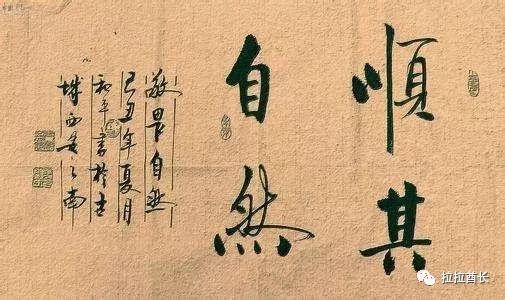 順其
自然
敬畏自然
己丑年夏月
和平書於古
城西安之南
拉拉酋长